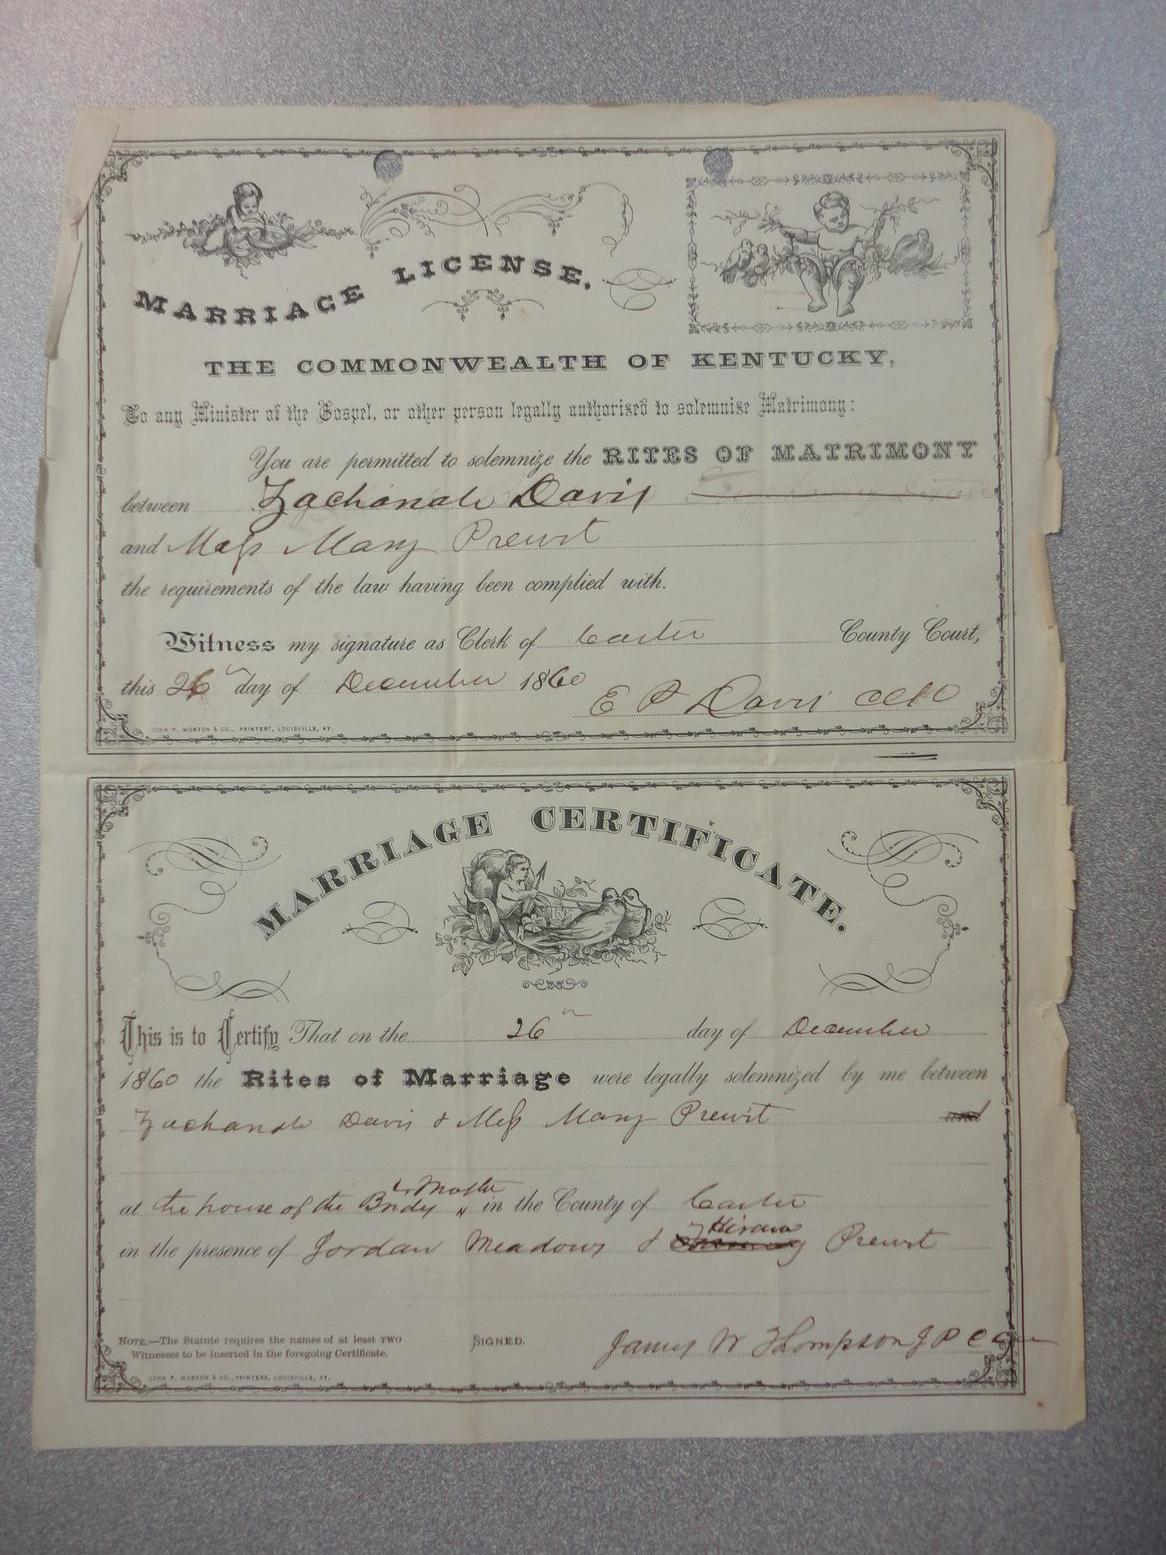 MARRIAGE LICENSE,
THE COMMONWEALTH OF KENTUCKY,
To any Minister of the Gospel, or other person legally authorised to solemnise Matrimony:
You are permitted to solemnize the RITES OF MATRIMONY
between Zachariah Davis
and Miss Mary Prewit
the requirements of the law having been complied with.
Witness my signature as Clerk of Carter County Court,
this 26th day of December 1860
E P Davis
JOHN P. MORTON & CO., PRINTERS, LOUISVILLE, KY.
MARRIAGE CERTIFICATE.
This is to Certify That on the 26th day of December
1860 the Rites of Marriage were legally solemnized by me between
Zachariah Davis & Miss Mary Prewit and
at the house of the Brids Mother in the County of Carter
in the presence of Jordan Meadows & Hiram Prewit
NOTE.—The Statute requires the names of at least TWO
Witnesses to be inserted in the foregoing Certificate.
SIGNED.
James W Thompson J P C C
JOHN P. MORTON & CO., PRINTERS, LOUISVILLE, KY.